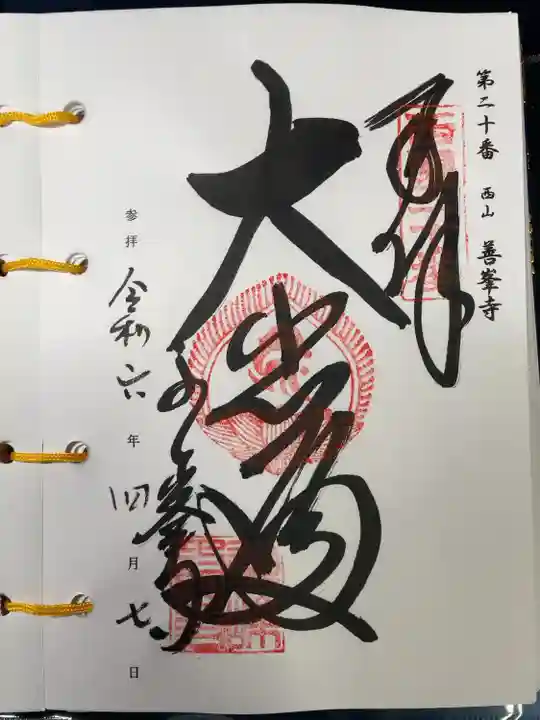 第二十番 西山 善峯寺
奉拝
大悲殿
よしみね寺
参拝 令和六年 四月 七日